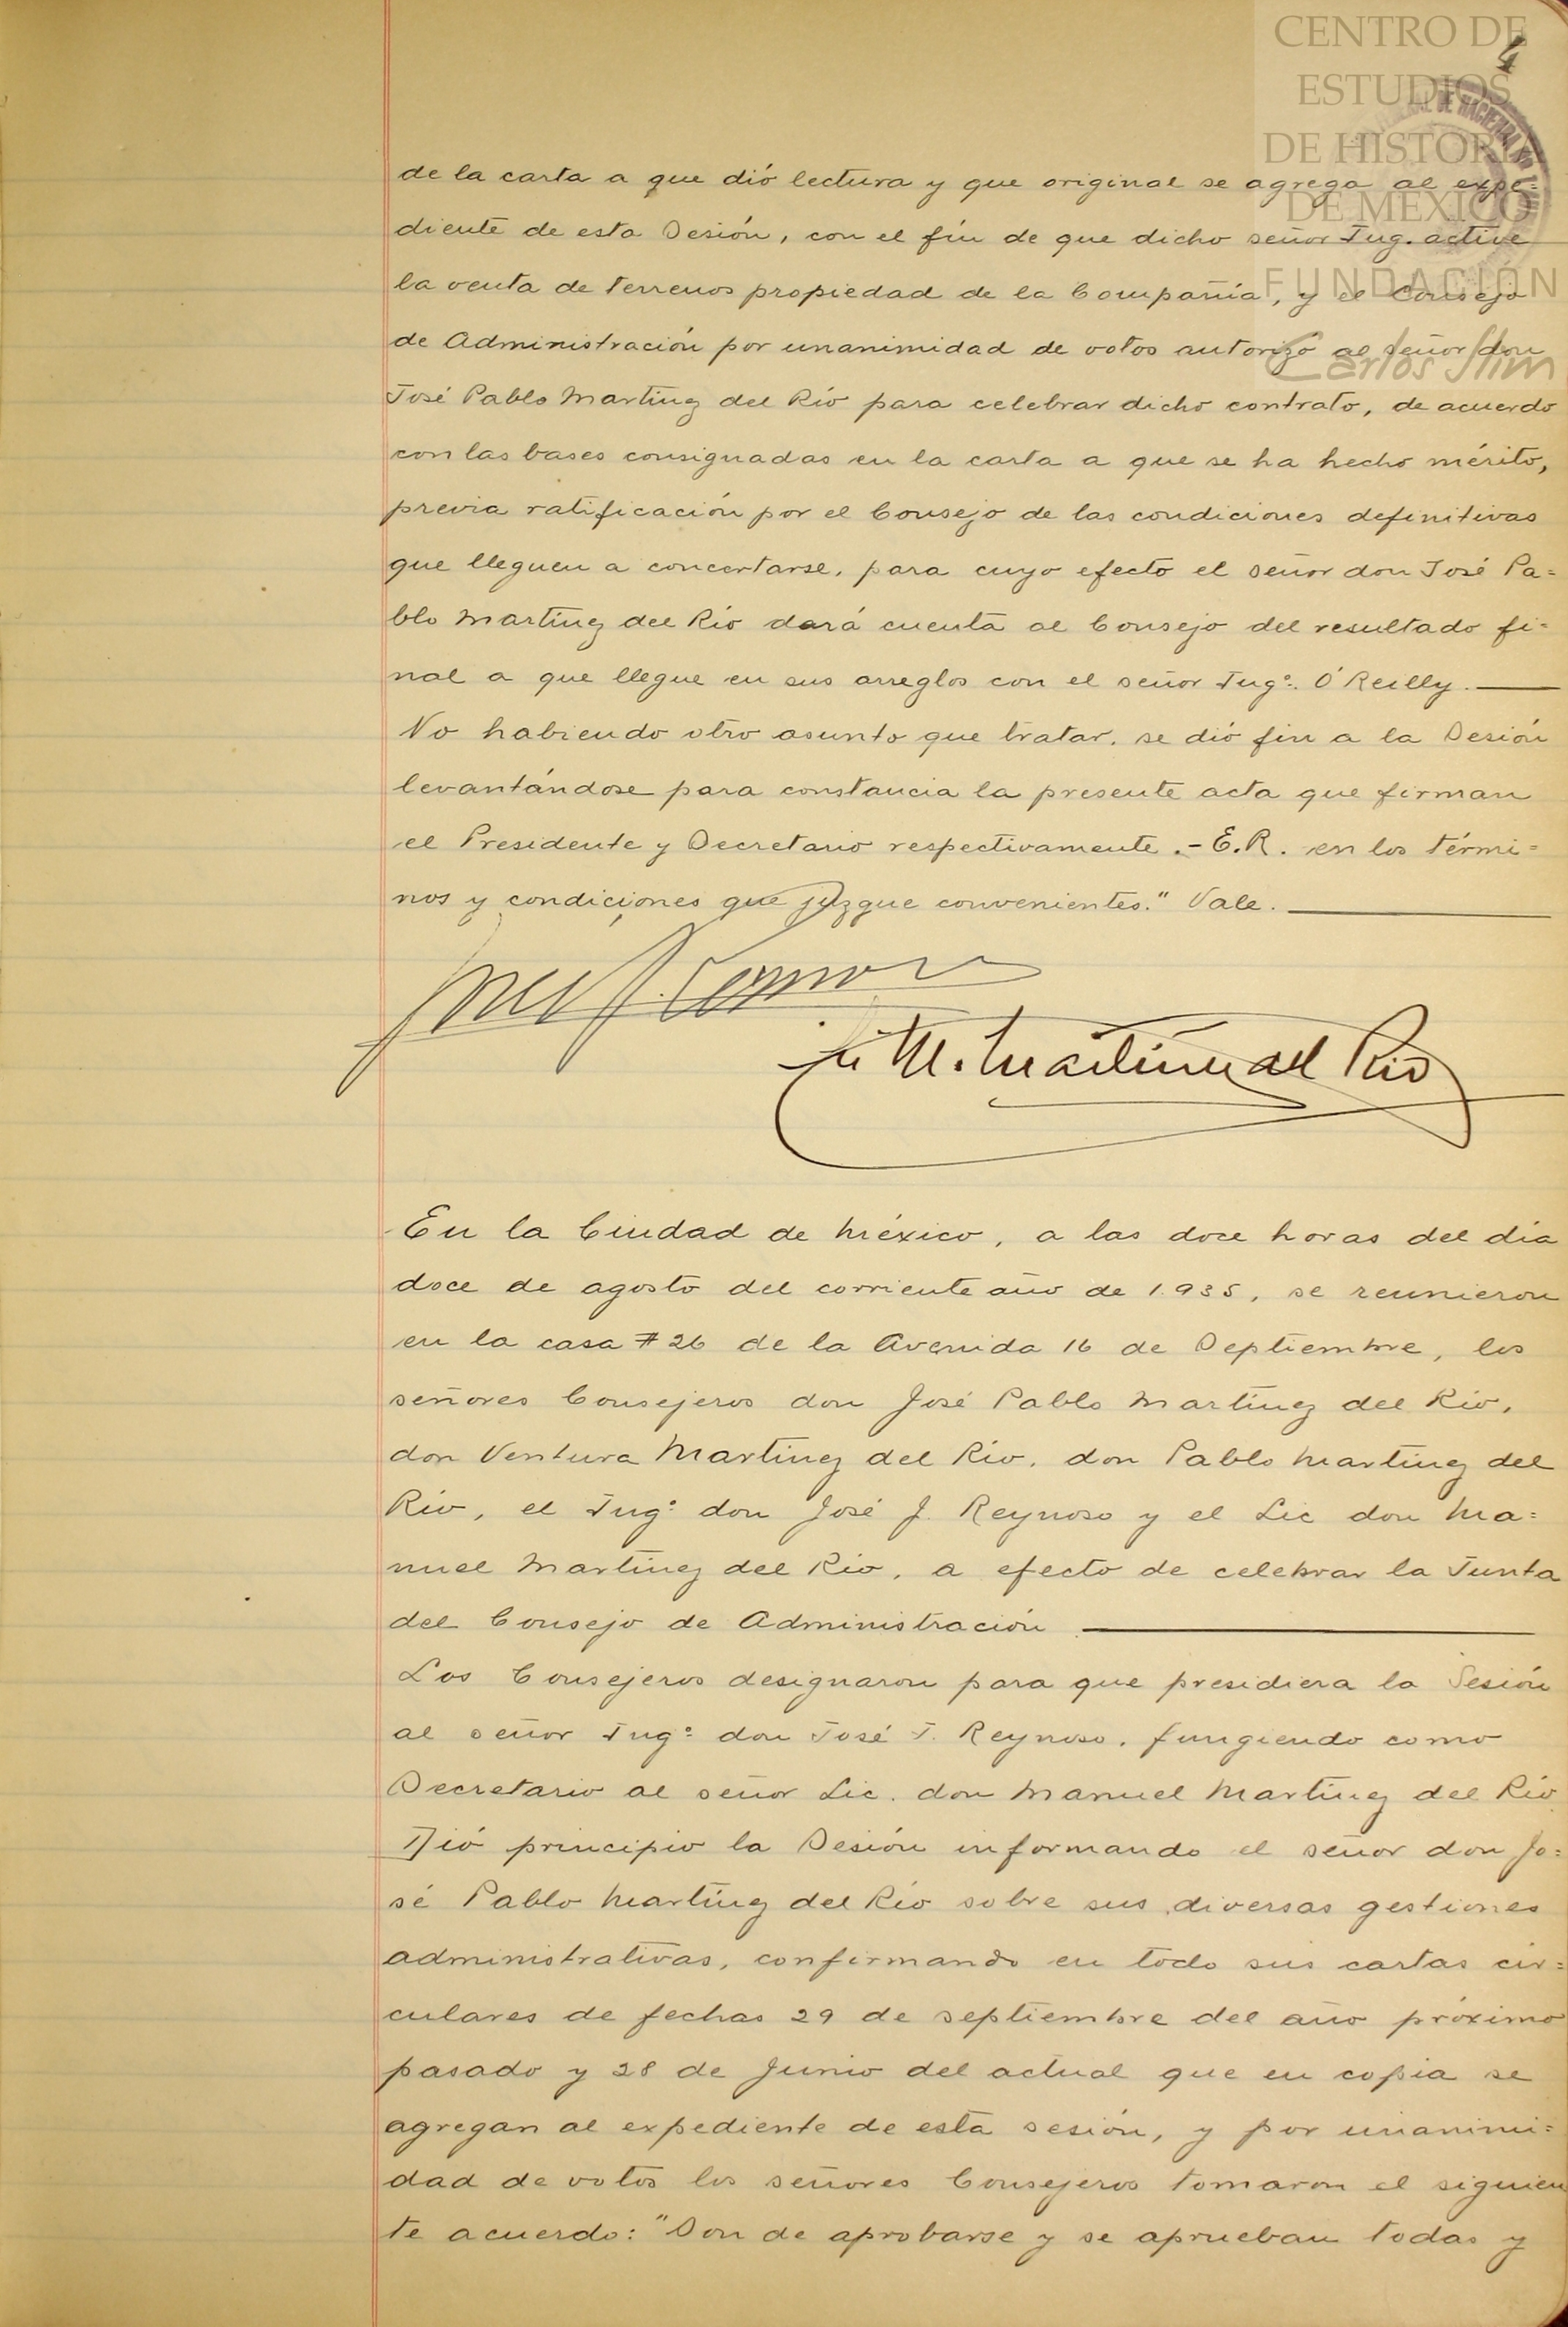 CENTRO DE
ESTUDIOS
DE HISTORIA
DE MEXICO
FUNDACIÓN
Carlos Slim
4
de la carta a que dió lectura y que original se agrega al expe=
diente de esta Sesión, con el fin de que dicho señor Ing. active
la venta de terrenos propiedad de la Compañía, y el Consejo
de Administración por unanimidad de votos autorizó al señor don
José Pablo Martínez del Río para celebrar dicho contrato, de acuerdo
con las bases consignadas en la carta a que se ha hecho mérito,
previa ratificación por el Consejo de las condiciones definitivas
que lleguen a concertarse, para cuyo efecto el señor don José Pa=
blo Martínez del Río dará cuenta al Consejo del resultado fi=
nal a que llegue en sus arreglos con el señor Ingº. O'Reilly.
No habiendo otro asunto que tratar, se dió fin a la Sesión
levantándose para constancia la presente acta que firman
el Presidente y Secretario respectivamente.- E.R. en los térmi=
nos y condiciones que juzgue convenientes." Vale.
M. Martinez del Rio
En la Ciudad de México, a las doce horas del día
doce de agosto del corriente año de 1.935, se reunieron
en la casa #26 de la Avenida 16 de Septiembre, los
señores Consejeros don José Pablo Martínez del Río,
don Ventura Martínez del Río, don Pablo Martínez del
Río, el Ingº don José J. Reynoso y el Lic don Ma=
nuel Martínez del Río, a efecto de celebrar la Junta
del Consejo de Administración
Los Consejeros designaron para que presidiera la Sesión
al señor Ingº don José J. Reynoso, fungiendo como
Secretario al señor Lic. don Manuel Martínez del Río
Dió principio la Sesión informando el señor don Jo=
sé Pablo Martínez del Río sobre sus diversas gestiones
administrativas, confirmando en todo sus cartas cir=
culares de fechas 29 de septiembre del año próximo
pasado y 28 de Junio del actual que en copia se
agregan al expediente de esta sesión, y por unanimi=
dad de votos los señores Consejeros tomaron el siguien
te acuerdo: "Son de aprobarse y se aprueban todas y